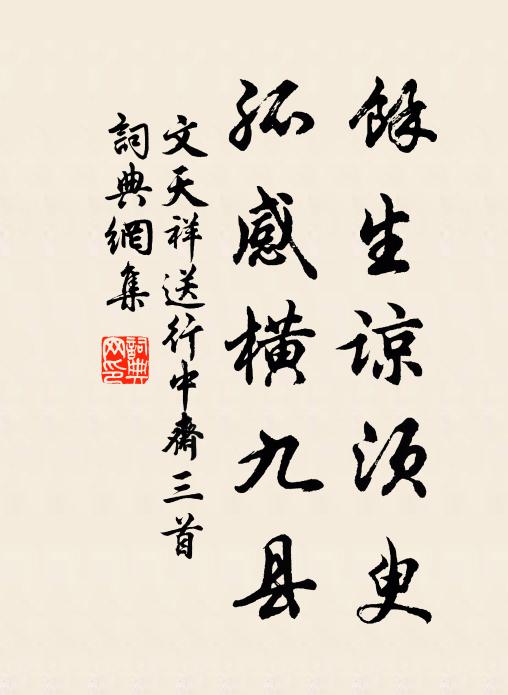 餘生諒須臾
孤感橫九县
文天祥送行中齋三首
詞典網集
詞典網印